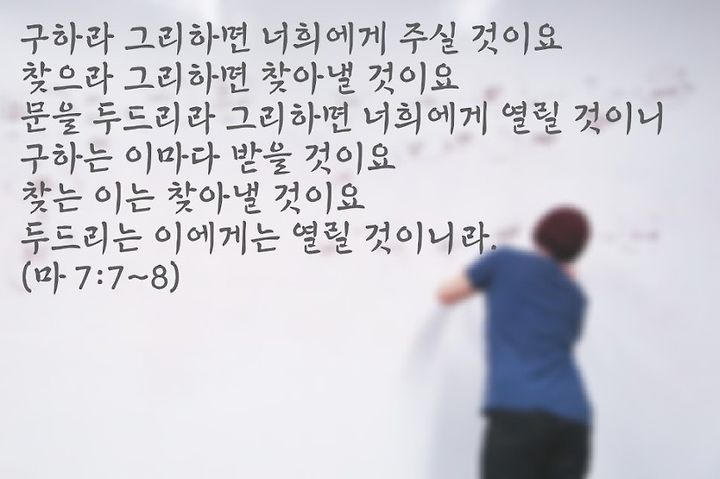 구하라 그리하면 너희에게 주실 것이요
찾으라 그리하면 찾아낼 것이요
문을 두드리라 그리하면 너희에게 열릴 것이니
구하는 이마다 받을 것이요
찾는 이는 찾아낼 것이요
두드리는 이에게는 열릴 것이니라.
(마 7:7~8)